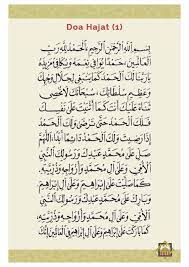 Doa Hajat (1)
بِسْمِ اللَّهِ الرَّحْمَنِ الرَّحِيمِ اَلْحَمْدُ لِلَّهِ رَبِّ
الْعَالَمِينَ، حَمْدًا يُوَافِي نِعَمَهُ وَيُكَافِئُ مَزِيدَهُ
يَا رَبَّنَا لَكَ الْحَمْدُ كَمَا يَنْبَغِي لِجَلَالِ وَجْهِكَ
وَعَظِيمِ سُلْطَانِكَ، سُبْحَانَكَ لَا نُحْصِي
ثَنَاءً عَلَيْكَ أَنْتَ كَمَا أَثْنَيْتَ عَلَى نَفْسِكَ
فَلَكَ الْحَمْدُ حَتَّى تَرْضَى وَلَكَ الْحَمْدُ
إِذَا رَضِيتَ وَلَكَ الْحَمْدُ بَعْدَ الرِّضَى. اَللَّهُمَّ
صَلِّ عَلَى مُحَمَّدٍ عَبْدِكَ وَرَسُولِكَ النَّبِيِّ
الْأُمِّيِّ وَعَلَى آلِ مُحَمَّدٍ وَأَزْوَاجِهِ وَذُرِّيَّتِهِ
كَمَا صَلَّيْتَ عَلَى إِبْرَاهِيمَ وَعَلَى آلِ إِبْرَاهِيمَ
وَبَارِكْ عَلَى مُحَمَّدٍ عَبْدِكَ وَرَسُولِكَ النَّبِيِّ
الْأُمِّيِّ وَعَلَى آلِ مُحَمَّدٍ وَأَزْوَاجِهِ وَذُرِّيَّتِهِ
كَمَا بَارَكْتَ عَلَى إِبْرَاهِيمَ وَعَلَى آلِ إِبْرَاهِيمَ فِي الْعَالَمِينَ إِنَّكَ